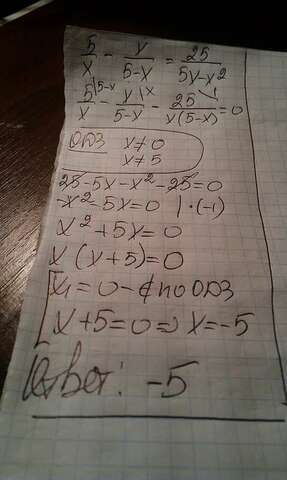 5/x - x/(5-x) = 25/(5x-x²)
5/x |5-x - x/(5-x) |x - 25/(x(5-x)) |1 = 0
ОДЗ x≠0
x≠5
25-5x-x²-25=0
-x²-5x=0 |·(-1)
x²+5x=0
x(x+5)=0
x₁=0-∉ по ОДЗ
x+5=0⇒x=-5
Ответ: -5